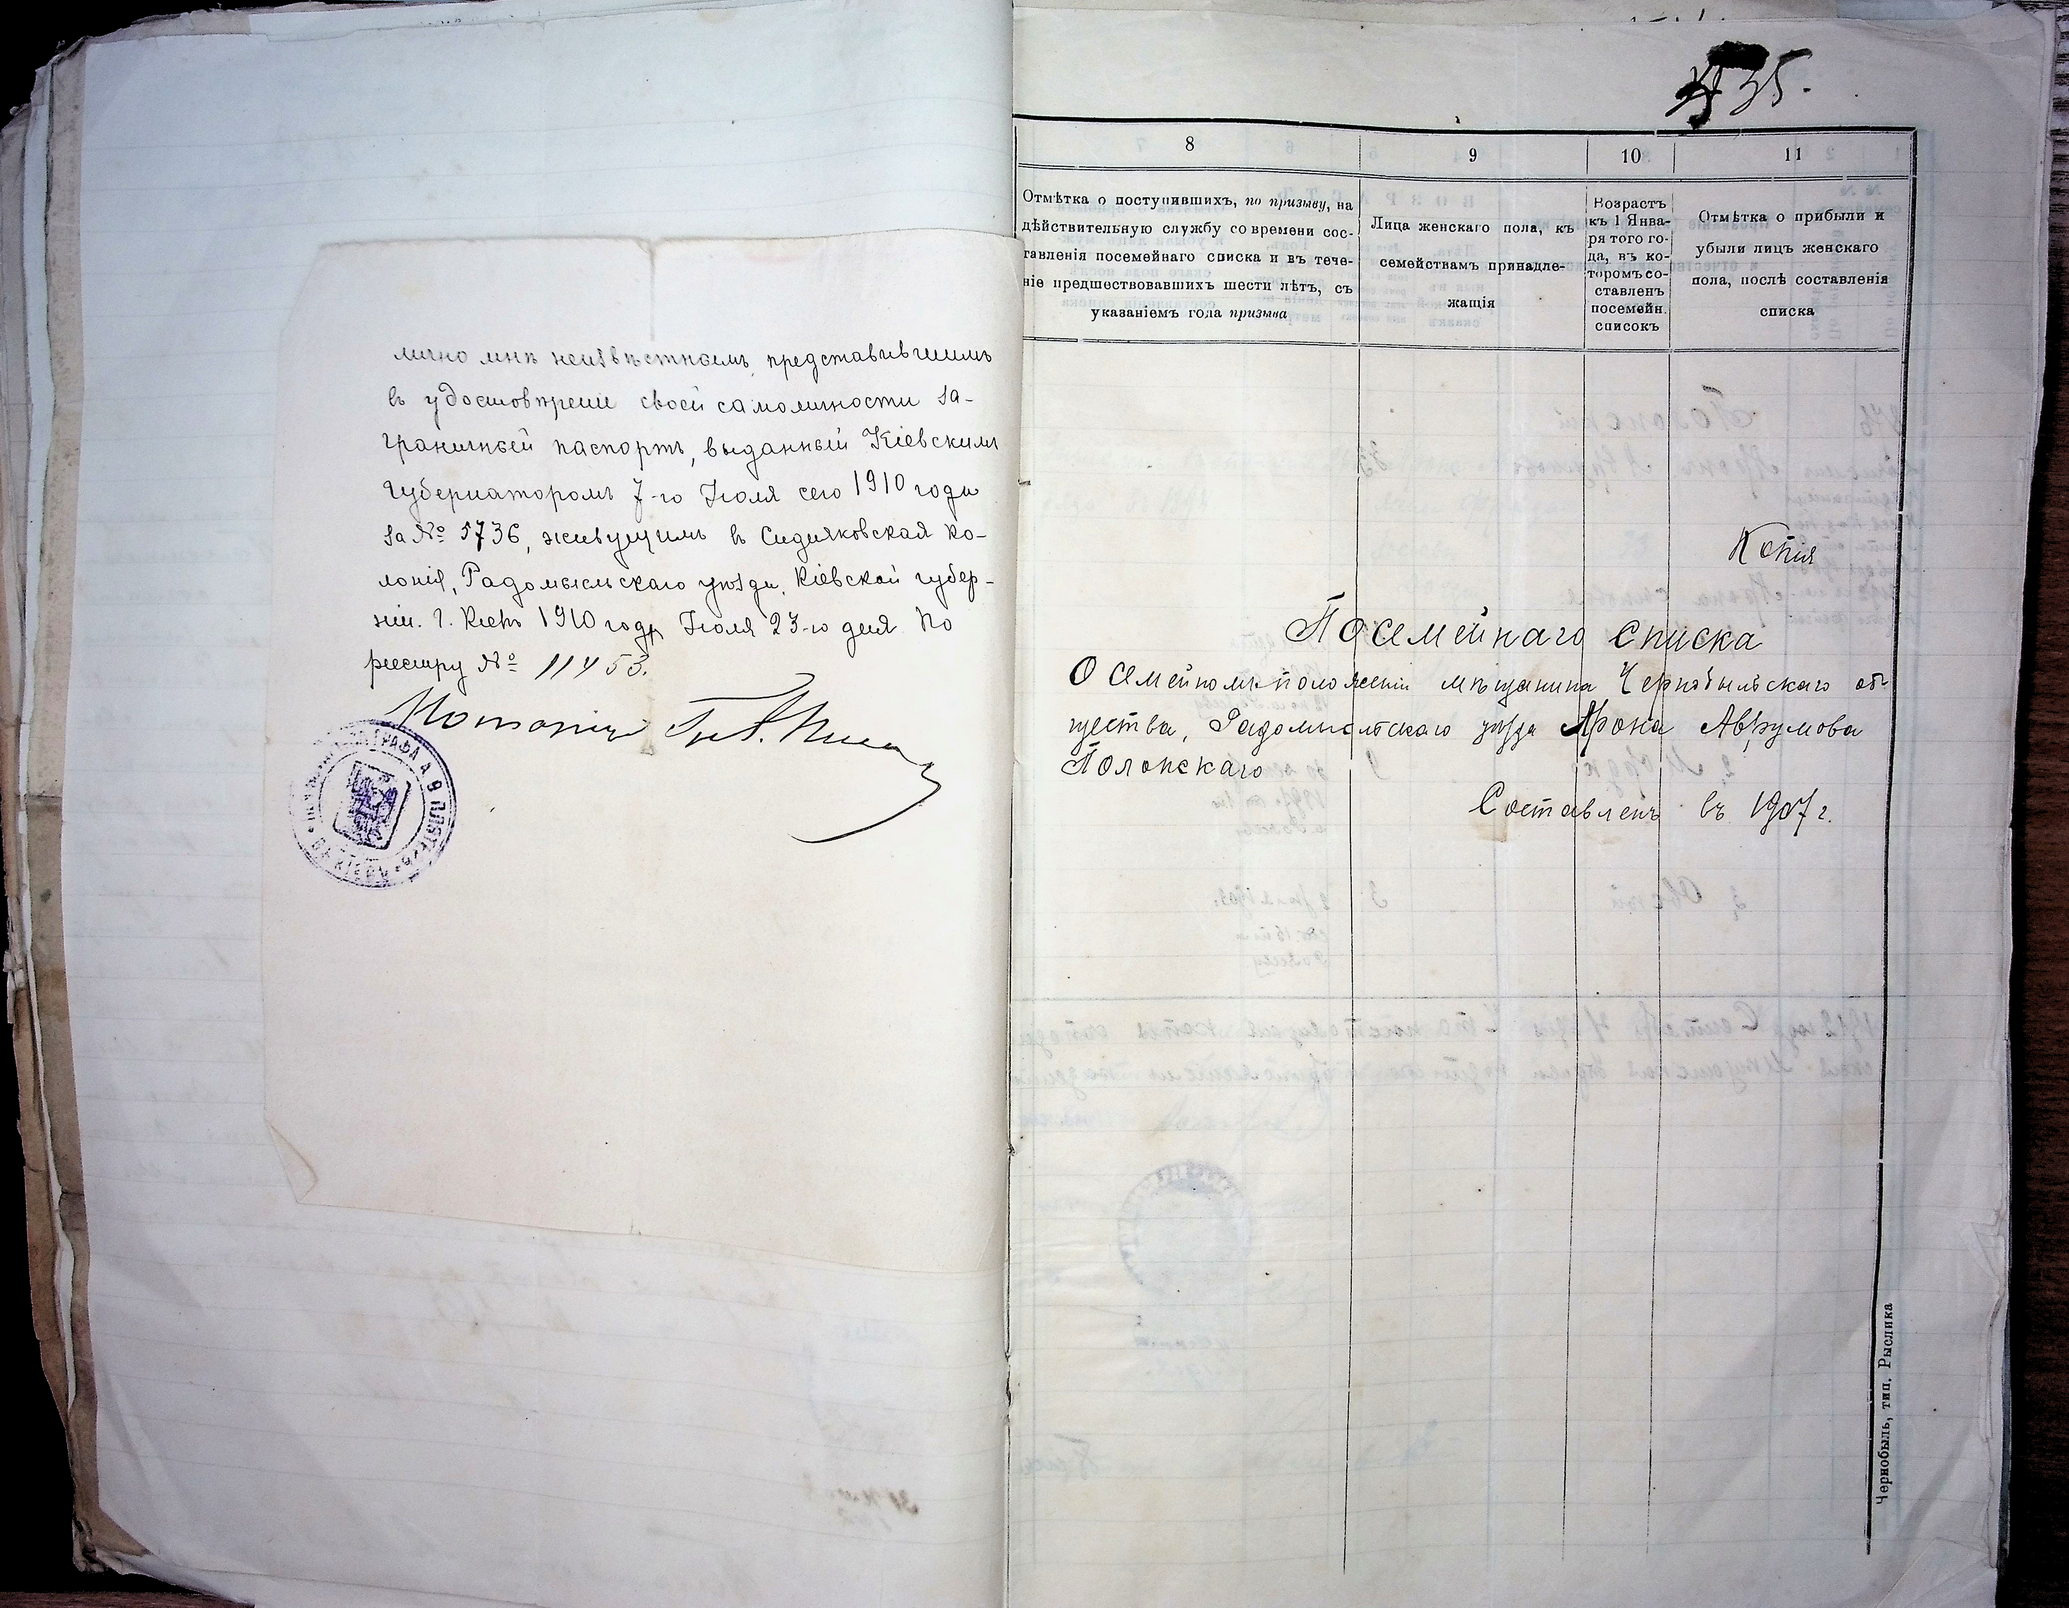 лично мнѣ неизвѣстнымъ, представившимъ
въ удостовѣреніе своей самоличности за-
граничный паспортъ, выданный Кіевскимъ
Губернаторомъ 7-го Іюля сего 1910 года
за № 5736, живущимъ въ Сидияковская ко-
лонія, Радомысльскаго уѣзда, Кіевской губер-
ніи. Г. Кіевъ 1910 года Іюля 23-го дня По
реестру № 11453.
Нотаріусъ
35.
8
9
10
11
Отмѣтка о поступившихъ, по призыву, на
дѣйствительную службу со времени сос-
тавленія посемейнаго списка и въ тече-
ніе предшествовавшихъ шести лѣтъ, съ
указаніемъ года призыва
Лица женскаго пола, къ
семействамъ принадле-
жащія
Возрастъ
къ 1 Янва-
ря того го-
да, въ ко-
торомъ со-
ставленъ
посемейн.
списокъ
Отмѣтка о прибыли и
убыли лицъ женскаго
пола, послѣ составленія
списка
Копія
Посемейнаго списка
О семейномъ положеніи мѣщанина Чернобыльскаго об-
щества, Радомысльскаго уѣзда Арона Аврумова
Полонскаго
Составленъ въ 1907 г.
Чернобыль, тип. Рыслика